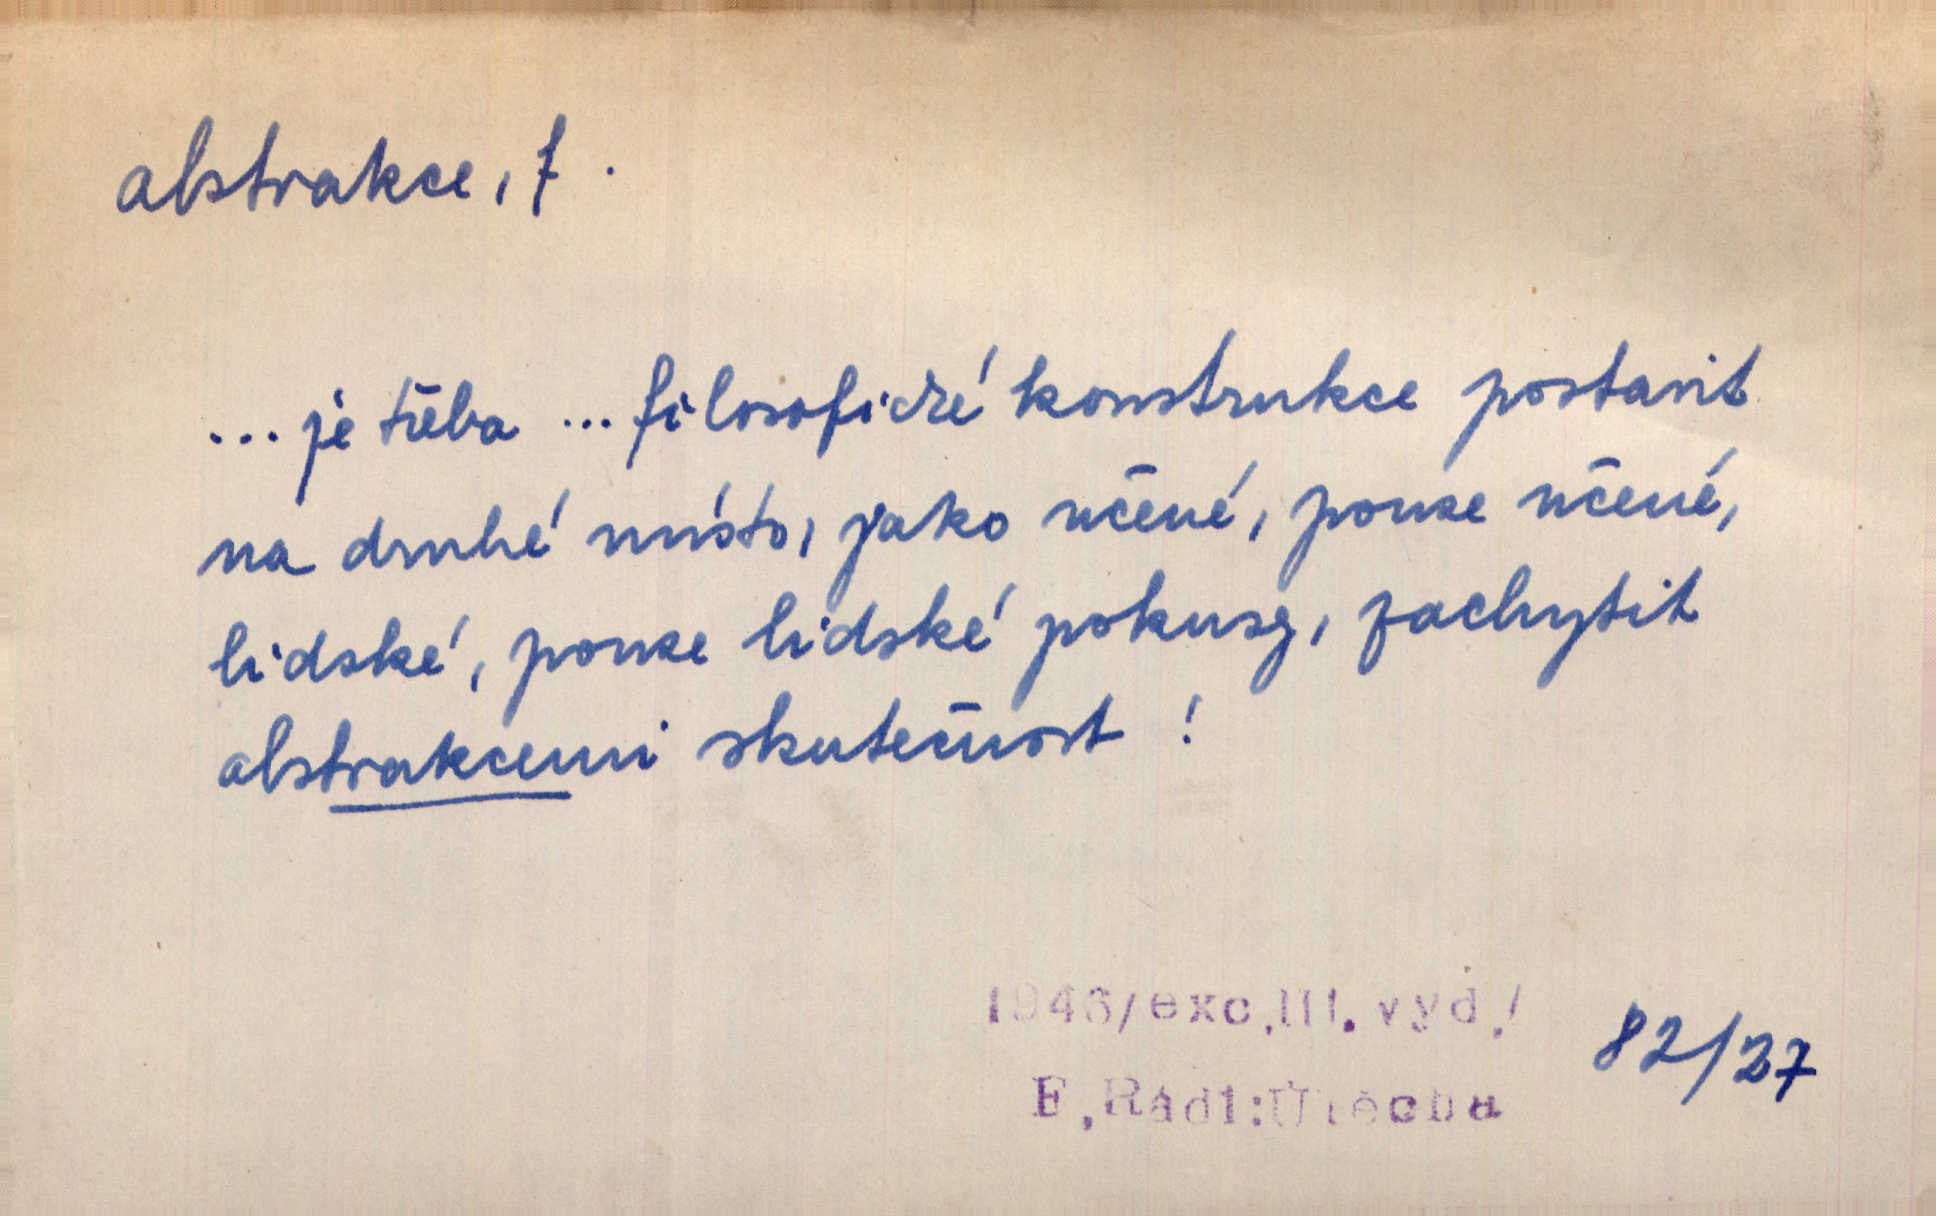 abstrakce, f.
... je třeba ... filosofické konstrukce postavit
na druhé místo, jako učené, pouze učené,
lidské, pouze lidské pokusy, zachytit
abstrakcemi skutečnost !
1946/exc.III. vyd./
82/27
E.Rádl:Útěcha